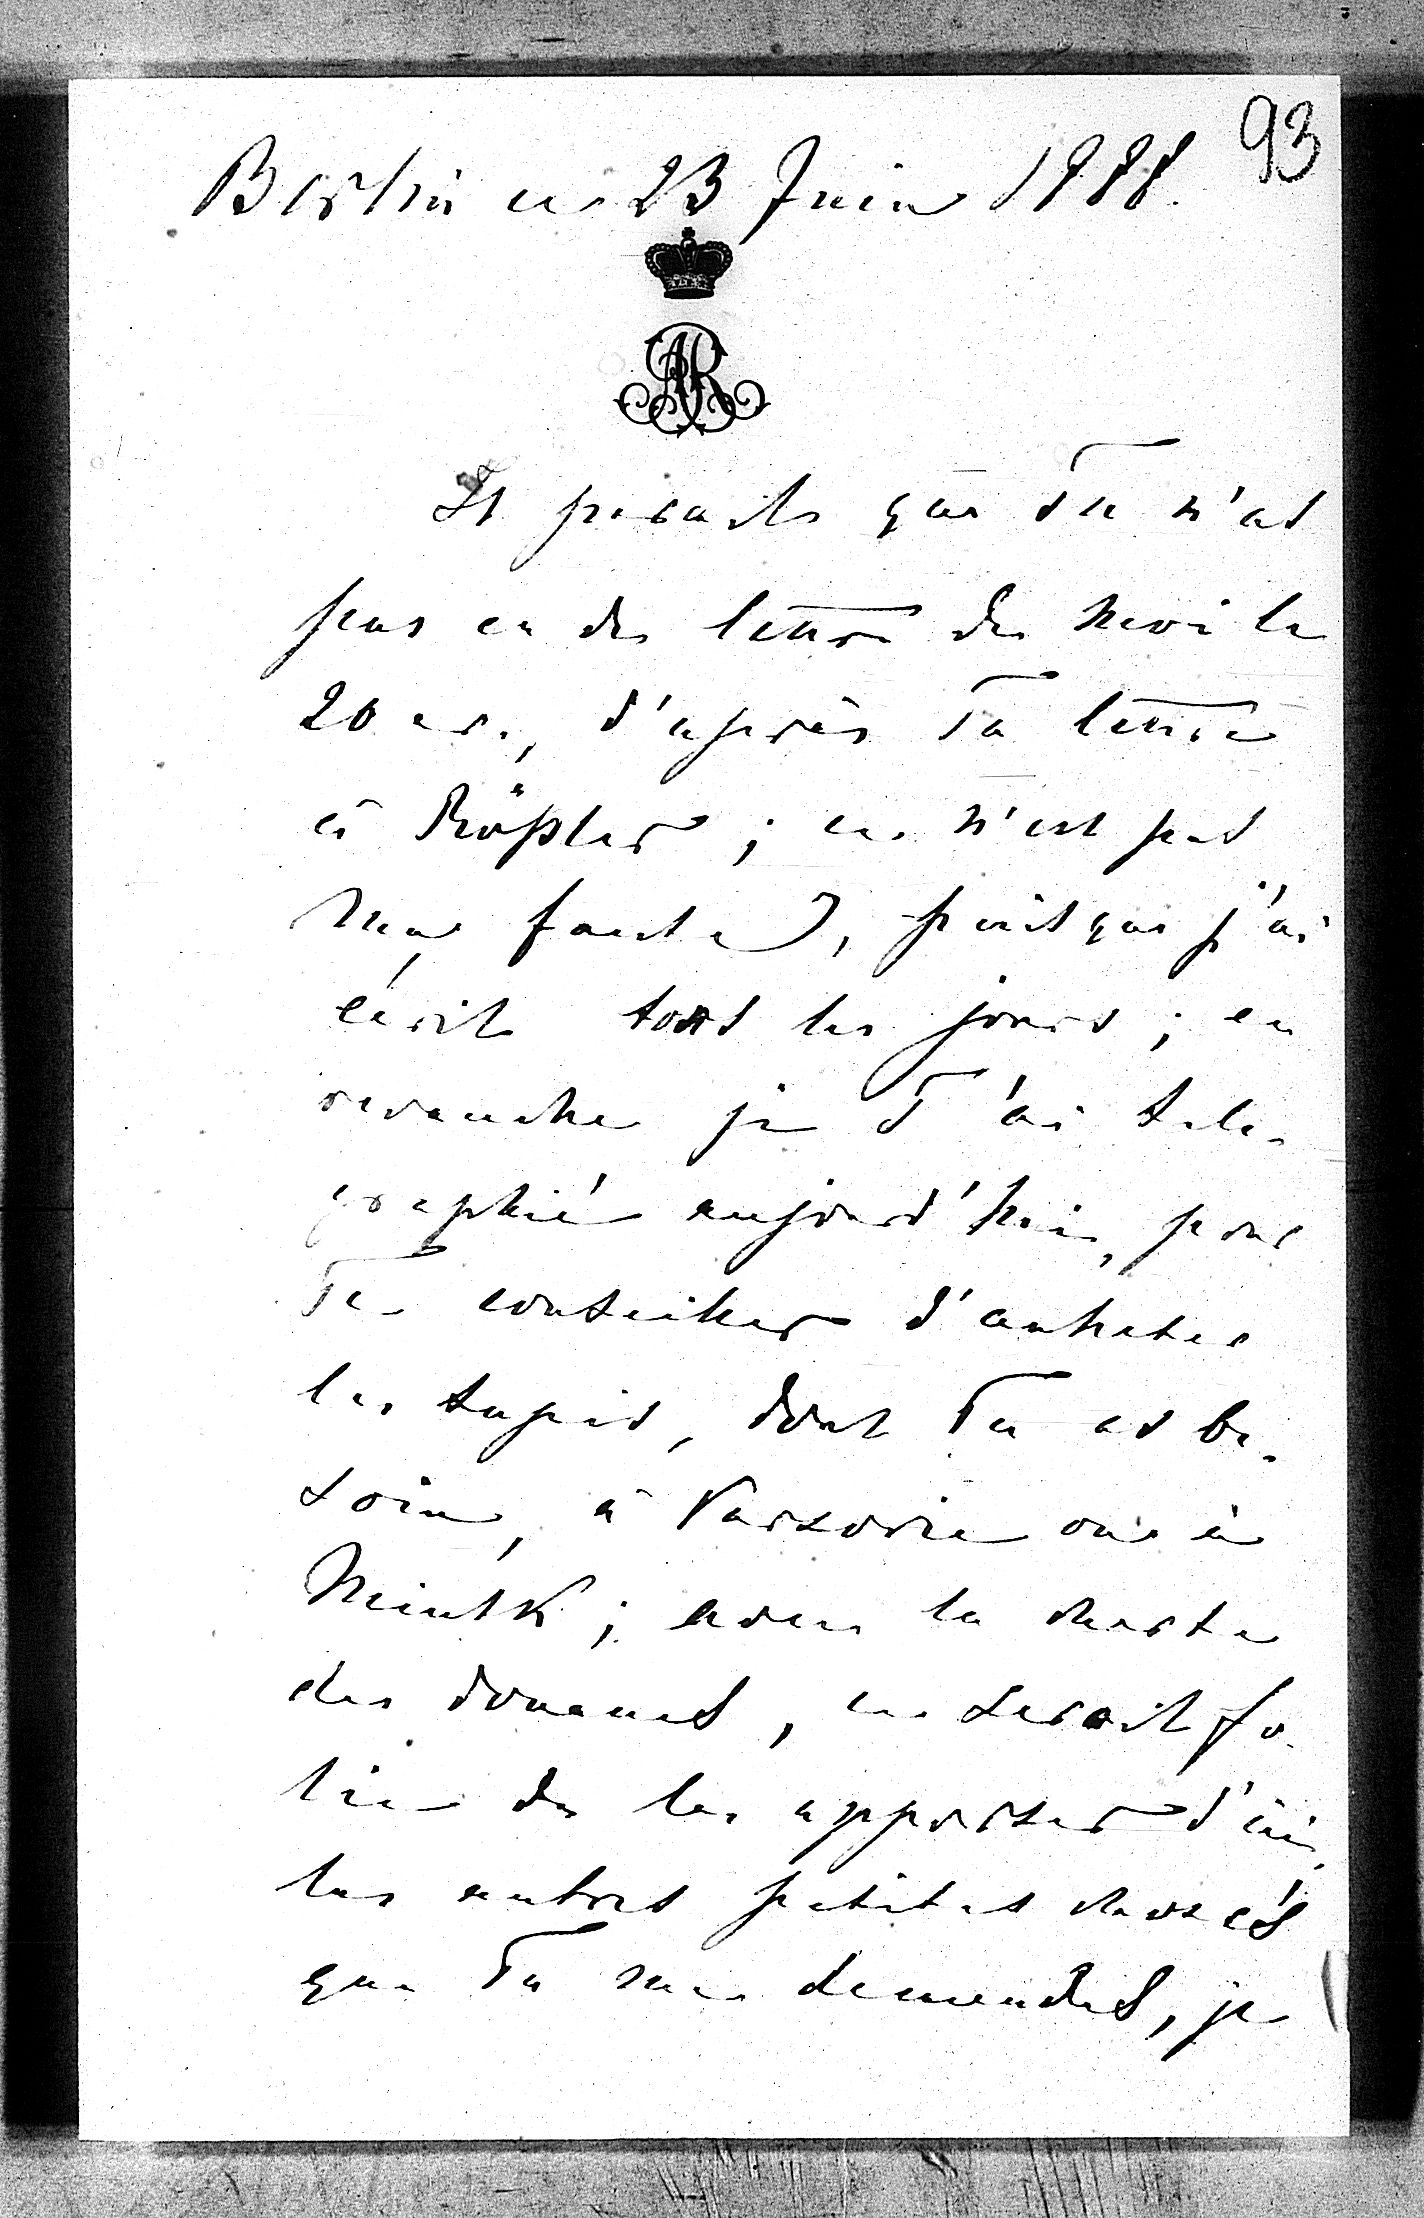 93
Berlin ce 23 Juin 1888.
AR
Il parait que Tu n'as
pas eu de lettre de moi le
20 cr., d'après Ta lettre
à Rößler ; ce n'est pas
ma faute, puisque j'ai
écrit tous les jours ; en
revanche je T'ai tele-
graphié aujourd'hui, pour
Te conseiller d'acheter
les tapis, dont Tu as be-
soin, à Varsovie ou à
Minsk ; avec la cherté
des douanes, ce serait fo-
lie de les apporter d'ici,
les autres petites choses
que Tu me demandes, je